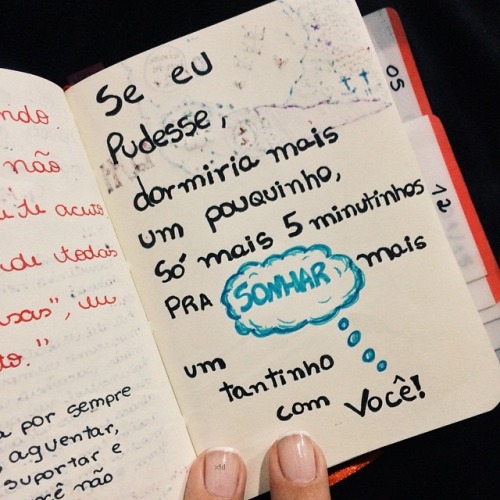 ndo
não
de todas
to."
a por sempre
aguentar,
suportar e
cê não
Se eu
Pudesse,
dormiria mais
um pouquinho,
Só mais 5 minutinhos
PRA SONHAR mais
um
tantinho
com Você!
05
12
xfd